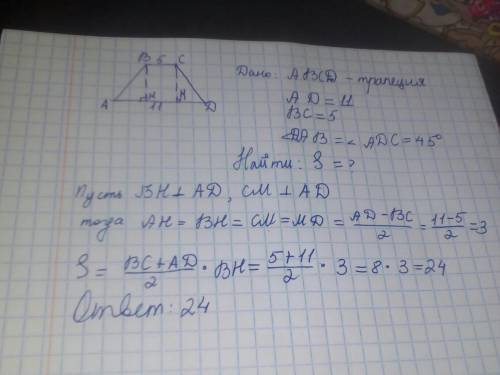 B 5 C
A H 11 M D
Дано: ABCD - трапеция
AD = 11
BC = 5
∠DAB = ∠ADC = 45°
Найти: S = ?
Пусть BH ⊥ AD, CM ⊥ AD
тогда AH = BH = CM = MD = \frac{AD - BC}{2} = \frac{11-5}{2} = 3
S = \frac{BC + AD}{2} · BH = \frac{5+11}{2} · 3 = 8 · 3 = 24
Ответ: 24